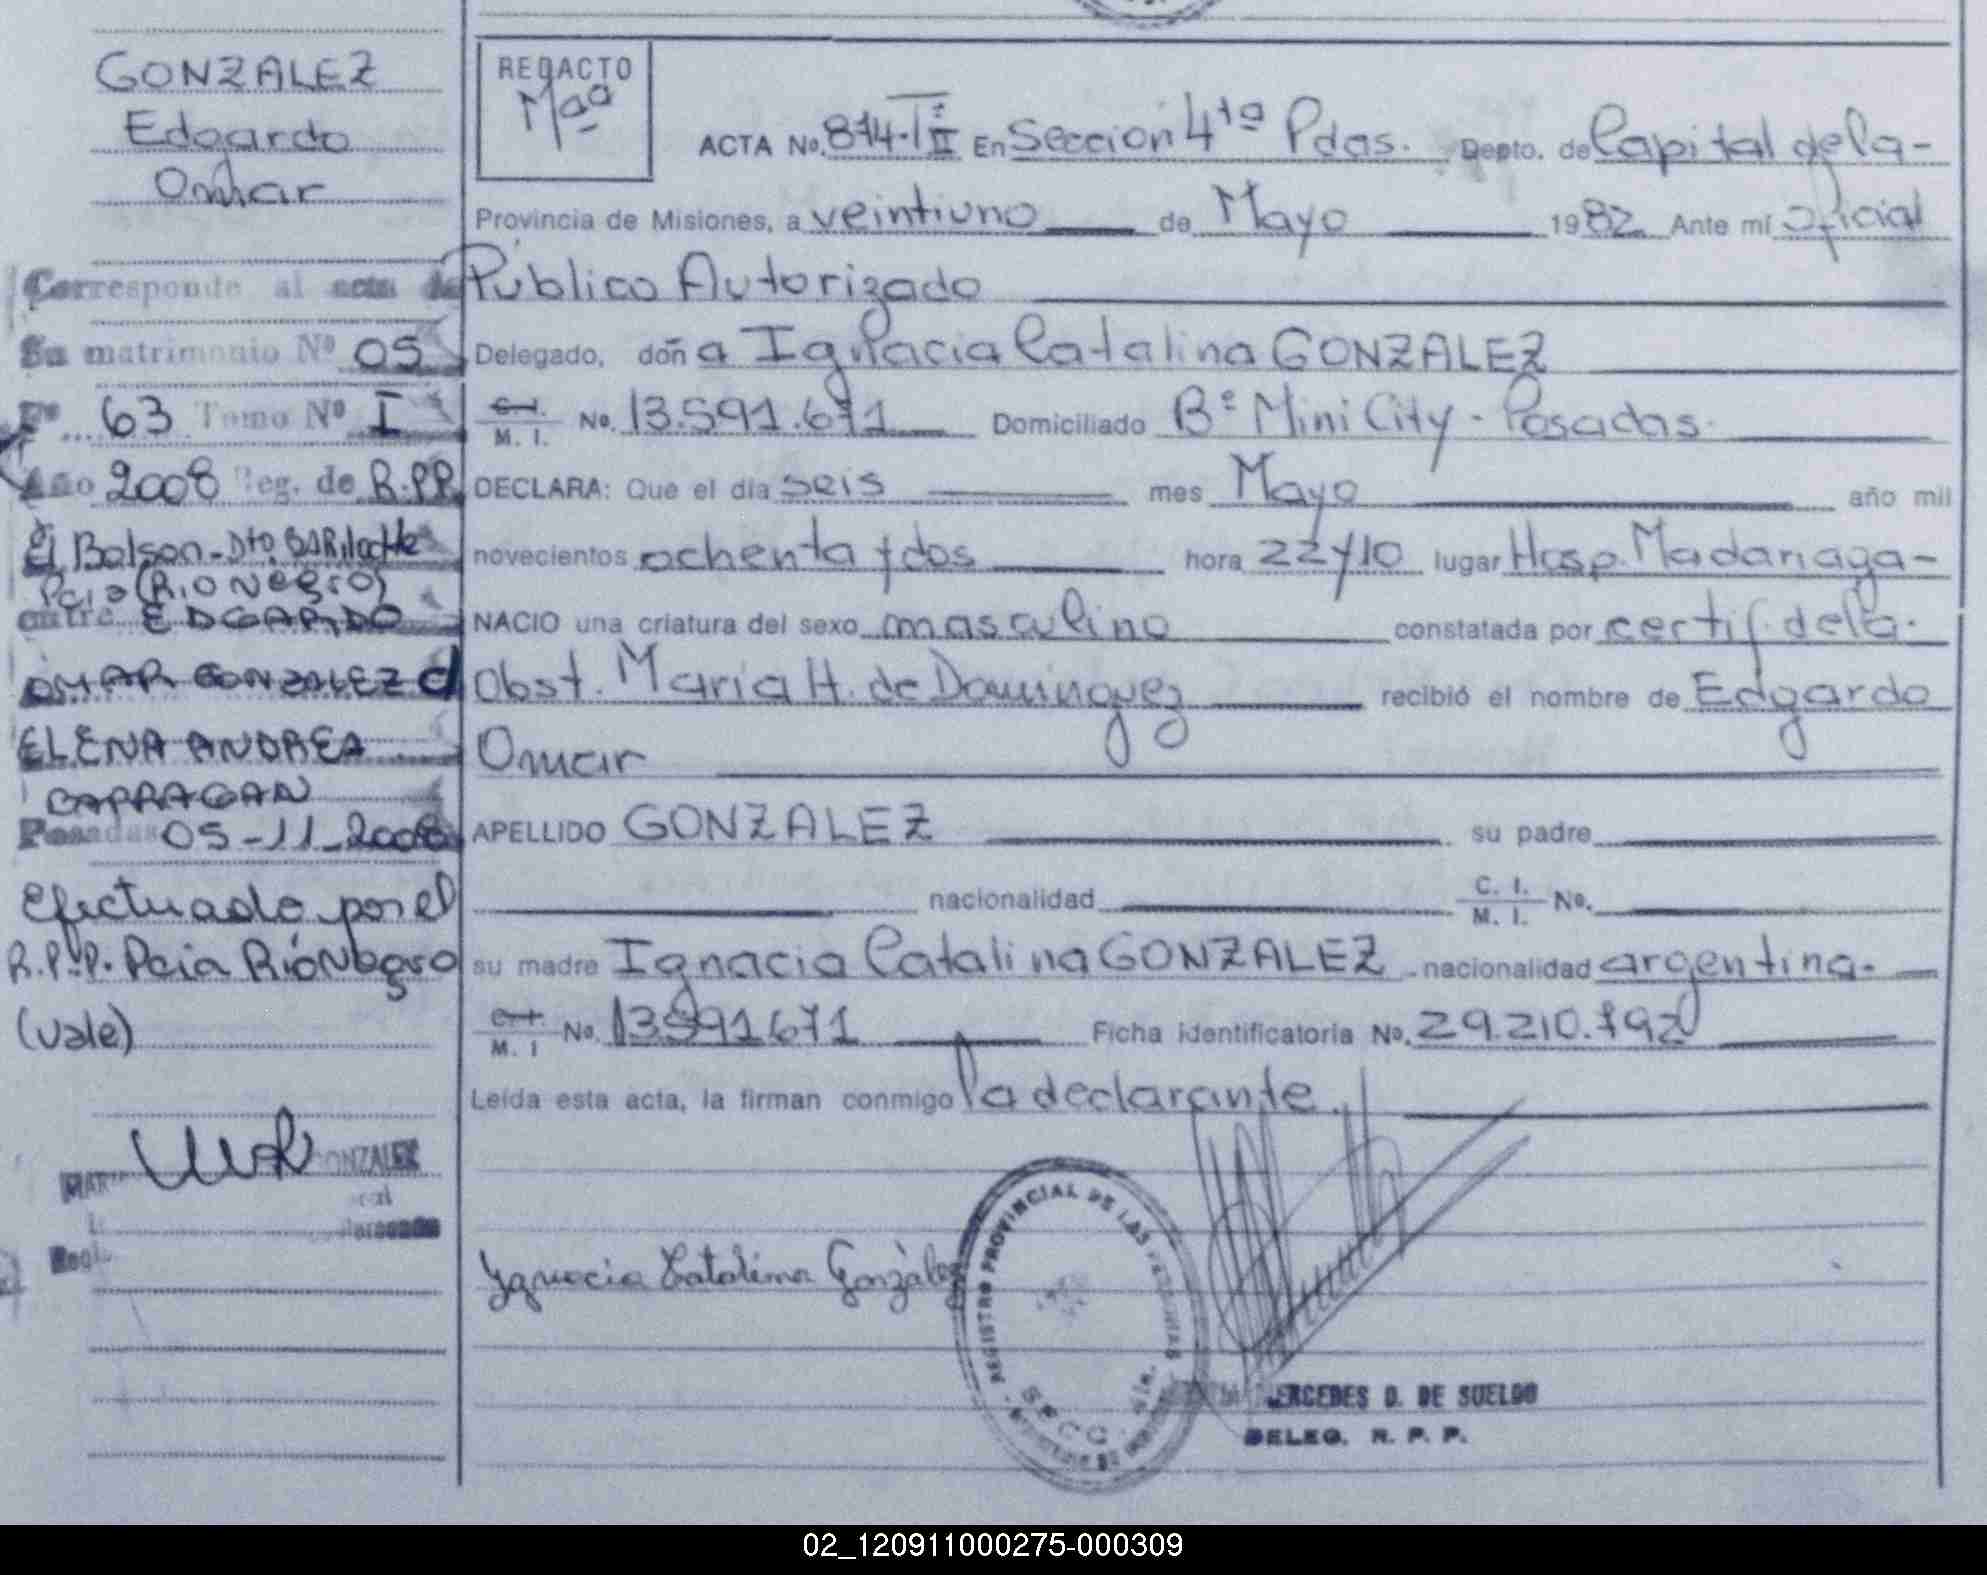 GONZALEZ
Edgardo
Omar
Corresponde al acta de
Su matrimonio Nº 05
Fº 63 Tomo Nº I
Año 2008 Reg. de R.P.P.
El Bolson - Dto. BARiloche
Pcia (Rio Negro)
entre EDGARDO
OMAR GONZALEZ c/
ELENA ANDREA
CARRAGAN
Posadas 05-11-2008
Efectuado por el
R.P.P. Pcia Río Negro
(vale)
GONZALEZ
REDACTO
ACTA No. 874-T II En Sección 4ta Pdas. Depto. de Capital de la-
Provincia de Misiones, a veintiuno de Mayo 1982 Ante mí Oficial
Público Autorizado
Delegado, doña Ignacia Catalina GONZALEZ
C. I. M. I. No. 13.591.671 Domiciliado Bº Mini City - Posadas.
DECLARA: Que el día seis mes Mayo año mil
novecientos ochenta y dos hora 22 y 10 lugar Hosp. Madariaga-
NACIO una criatura del sexo masculino constatada por certif. de la.
Obst. María H. de Dominguez recibió el nombre de Edgardo
Omar
APELLIDO GONZALEZ su padre
nacionalidad C. I. M. I. No.
su madre Ignacia Catalina GONZALEZ nacionalidad argentina.
C. I. M. I No. 13591671 Ficha identificatoria No. 29.210.792
Leída esta acta, la firman conmigo la declarante.
Ygnacia Catalina González
REGISTRO PROVINCIAL DE LAS PERSONAS
SECC. 4ta.
MERCEDES D. DE SUELDO
DELEG. R. P. P.
02_120911000275-000309